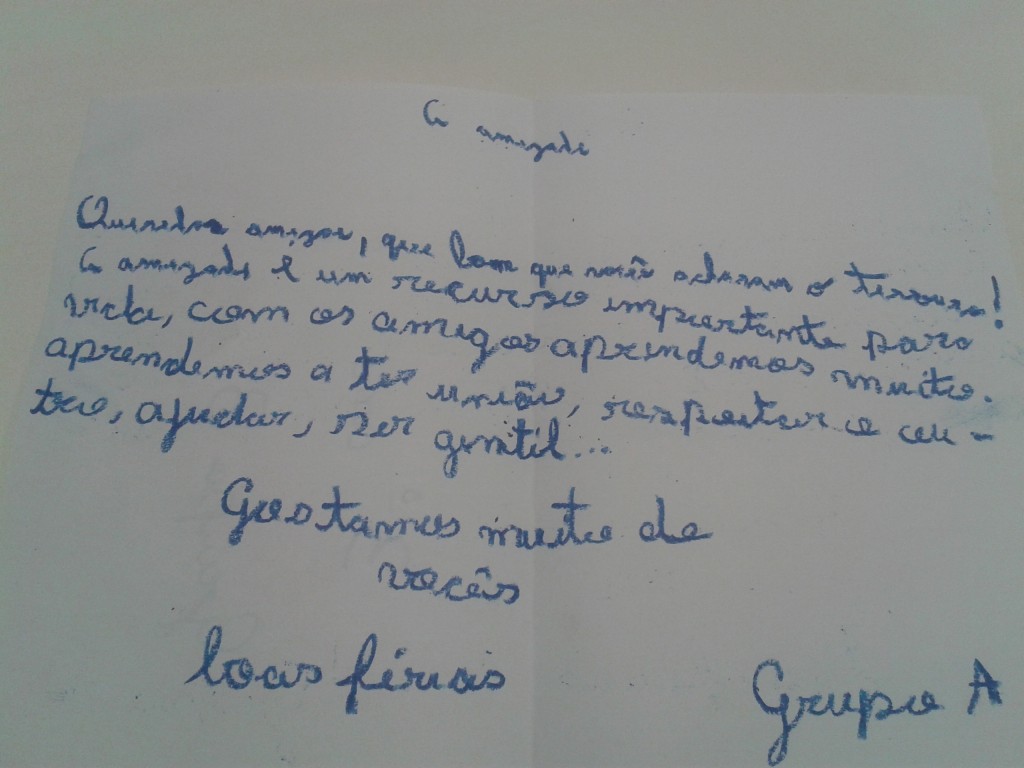 A amizade
Queridos amigos, que bom que vocês acharam o tesouro!
A amizade é um recurso importante para
vida, com os amigos aprendemos muito.
aprendemos a ter união, respeitar o ou-
tro, ajudar, ser gentil...
Gostamos muito de
vocês
boas férias
Grupo A